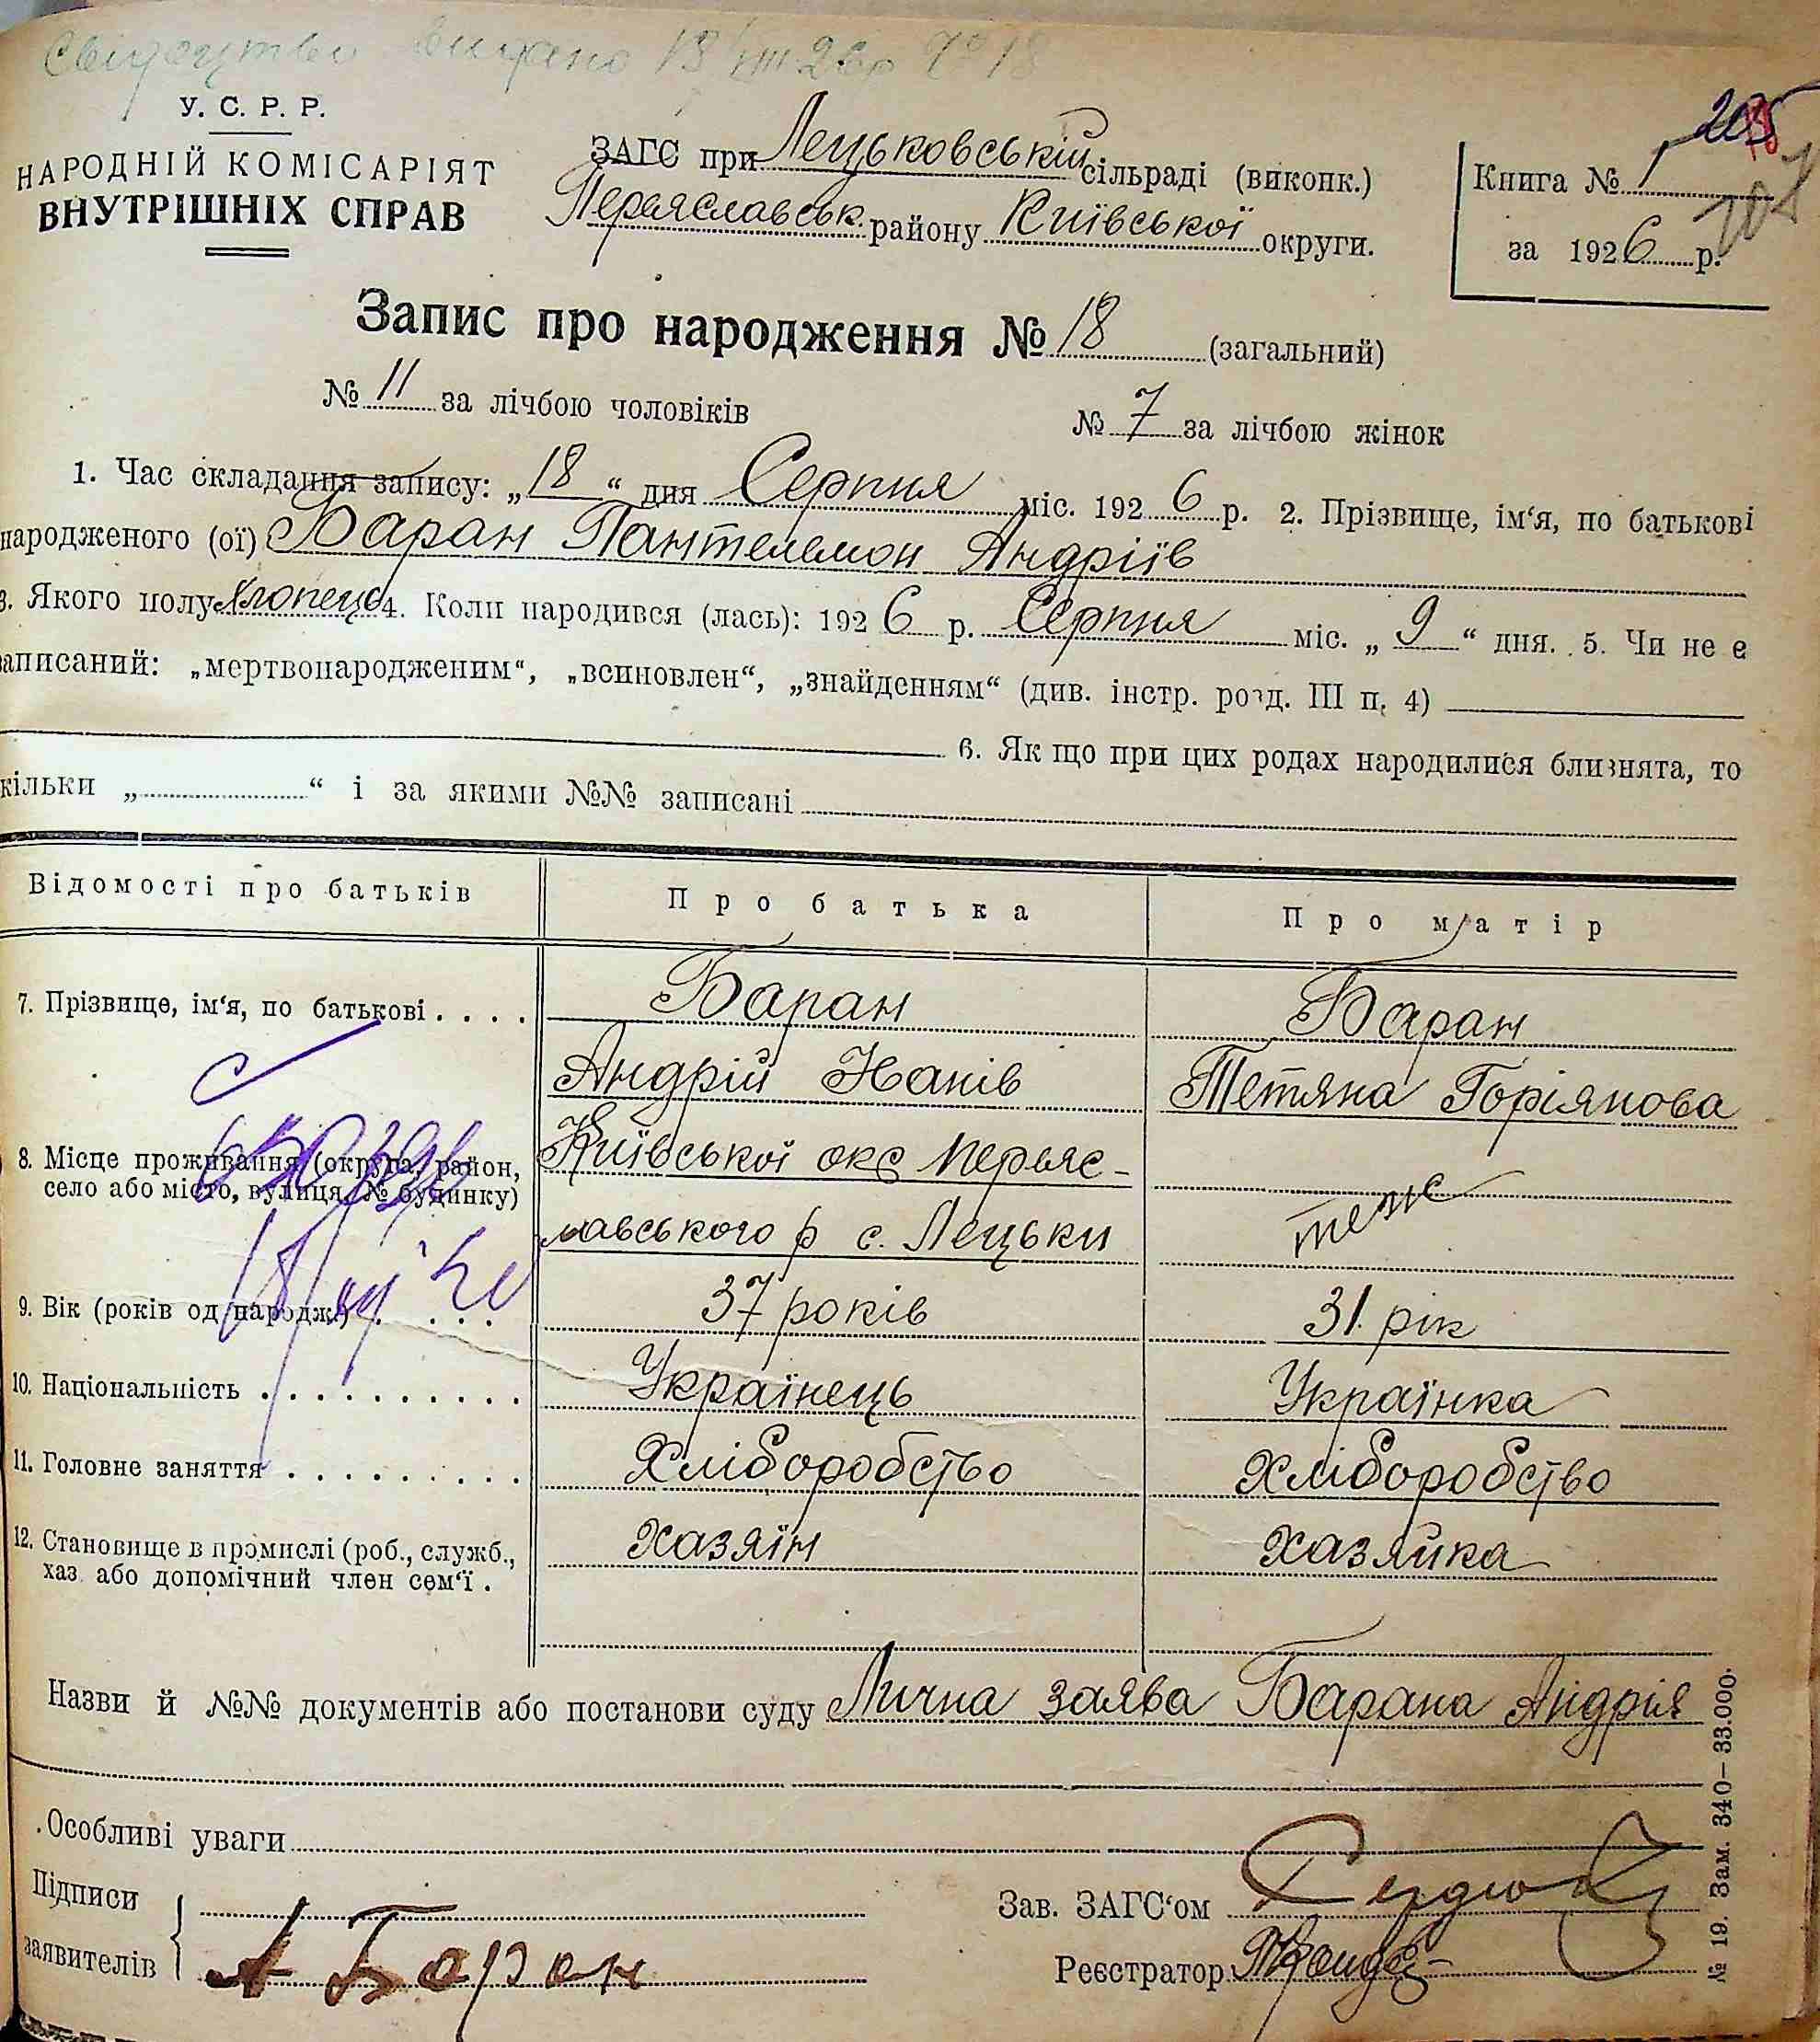 видано 18/VIII 26р № 18
205
У. С. Р. Р.
НАРОДНІЙ КОМІСАРІЯТ
ВНУТРІШНІХ СПРАВ
ЗАГС при Лецьковській сільраді (виконк.)
Переяславськ. району Київської округи.
Книга № 1
за 1926 р.
Запис про народження № 18 (загальний)
№ 11 за лічбою чоловіків № 7 за лічбою жінок
1. Час складання запису: „18“ дня Серпня міс. 1926 р. 2. Прізвище, ім‘я, по батькові
народженого (ої) Баран Пантелемон Андріїв
3. Якого полу хлопець 4. Коли народився (лась): 1926 р. Серпня міс. „9“ дня. 5. Чи не є
записаний: „мертвонародженим“, „всиновлен“, „знайденням“ (див. інстр. розд. III п. 4)
6. Як що при цих родах народилися близнята, то
кільки „ “ і за якими №№ записані
Відомості про батьків Про батька Про матір
7. Прізвище, ім‘я, по батькові . . . . Баран Баран
Андрій Тетяна
8. Місце проживання (округа, район, Київської окр Переяс-
село або місто, вулиця, № будинку) теж
лавського р с. Лецьки
9. Вік (років од народж.) . . . . 37 років 31 рік
10. Національність . . . . . . . . . . . Українець Українка
11. Головне заняття . . . . . . . . . . Хліборобство Хліборобство
12. Становище в промислі (роб., служб., хазяїн хазяйка
хаз. або допомічний член сем‘ї .
Назви й №№ документів або постанови суду Лична заява Барана Андрія
Особливі уваги
Підписи
заявителів А Баран
Зав. ЗАГС‘ом Сердюк
Реєстратор
№ 19. Зам. 340—33.000.